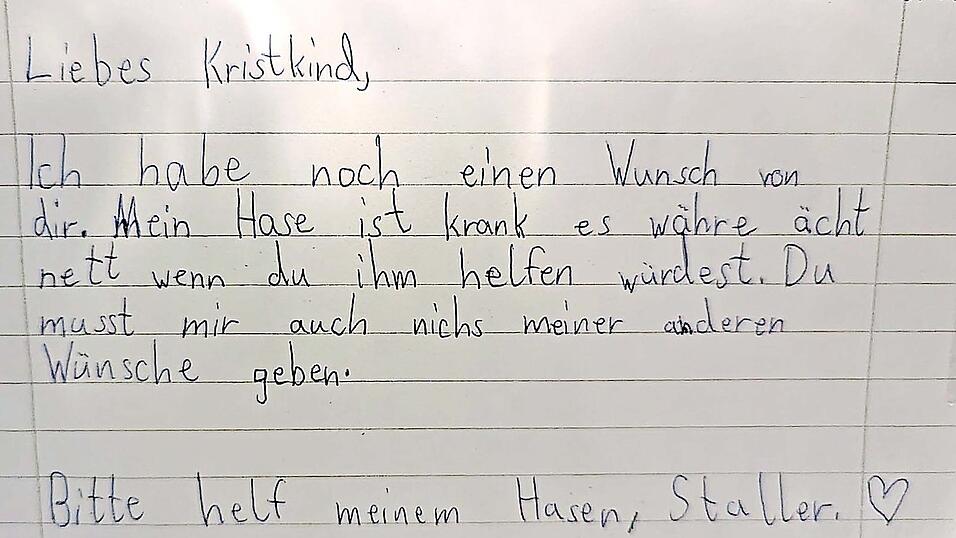 Liebes Kristkind,
Ich habe noch einen Wunsch von
dir. Mein Hase ist krank es währe ächt
nett wenn du ihm helfen würdest. Du
musst mir auch nichs meiner anderen
Wünsche geben.
Bitte helf meinem Hasen, Staller. ♡